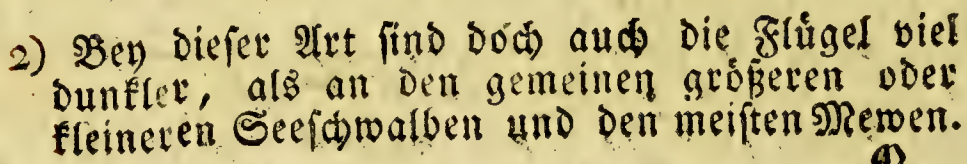 2) Bey dieſer Art ſind doch auch die Flügel viel
dunkler, als an den gemeinen größeren oder
kleineren Seeſchwalben und den meiſten Mewen.